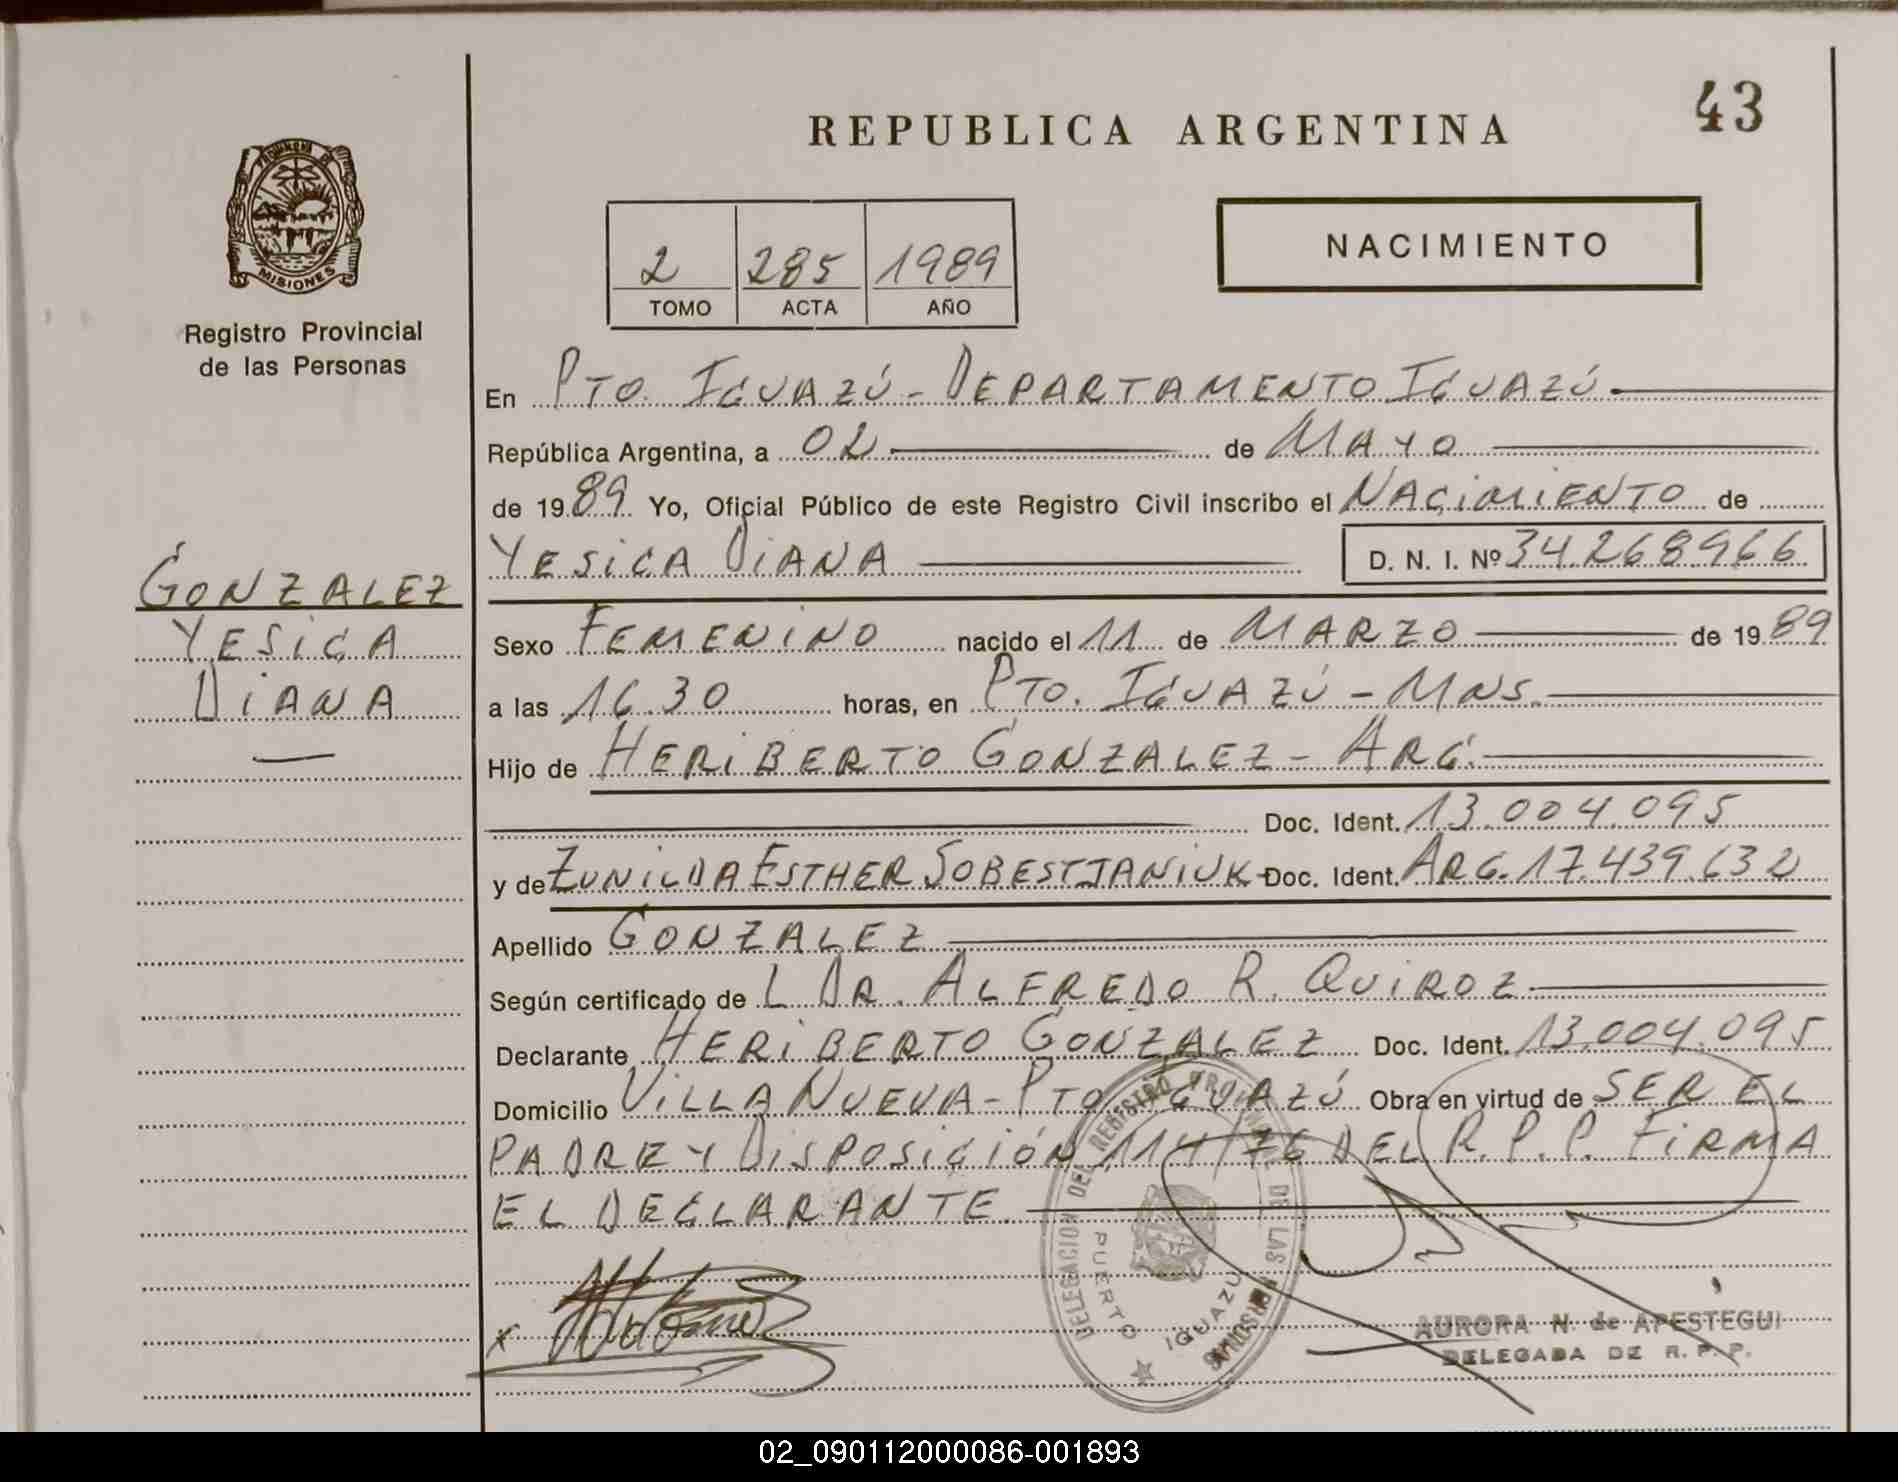 43
REPUBLICA ARGENTINA
PROVINCIA DE
MISIONES
Registro Provincial
de las Personas
NACIMIENTO
2 285 1989
TOMO ACTA AÑO
En PTO. IGUAZÚ - DEPARTAMENTO IGUAZÚ
República Argentina, a 02 de MAYO
de 1989 Yo, Oficial Público de este Registro Civil inscribo el NACIMIENTO de
YESICA DIANA D. N. I. Nº 34.268.966
GONZALEZ
YESICA
DIANA
Sexo FEMENINO nacido el 11 de MARZO de 1989
a las 16.30 horas, en PTO. IGUAZÚ - MNS.
Hijo de HERIBERTO GONZALEZ - ARG.
Doc. Ident. 13.004.095
y de ZUNILDA ESTHER SOBESTJANIUK - Doc. Ident. ARG. 17.439.632
Apellido GONZALEZ
Según certificado de L DR. ALFREDO R. QUIROZ
Declarante HERIBERTO GONZALEZ Doc. Ident. 13.004.095
Domicilio VILLA NUEVA - PTO IGUAZÚ Obra en virtud de SER EL
PADRE Y DISPOSICIÓN 114/76 DEL R.P.P. FIRMA
EL DECLARANTE.
DELEGACION DEL REGISTRO PROVINCIAL DE LAS PERSONAS
PUERTO IGUAZU
x
AURORA N. de APESTEGUI
DELEGADA DE R. P. P.
02_090112000086-001893